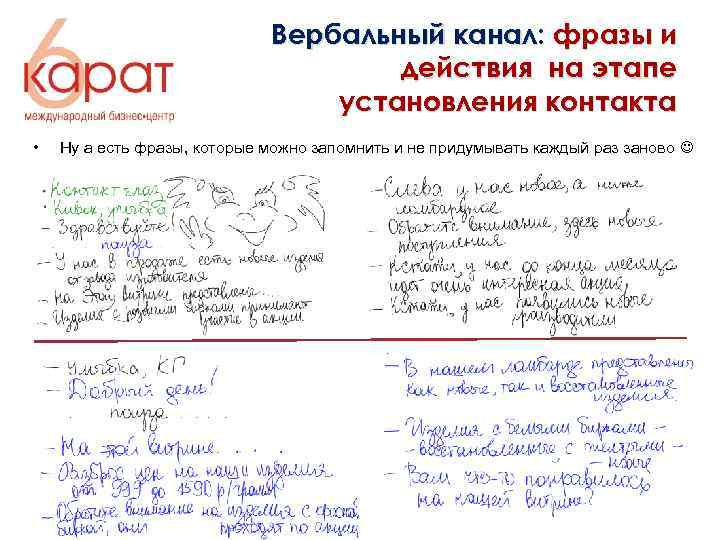 6 карат
международный бизнес•центр
Вербальный канал: фразы и
действия на этапе
установления контакта
• Ну а есть фразы, которые можно запомнить и не придумывать каждый раз заново ☺
• Контакт глаз
• Кивок, улыбка
– Здравствуйте!
пауза
– У нас в продаже есть новое изделия
от завода изготовителя
– На этой витрине представлена....
– Изделия с зелёными бирками принимают
участие в акции
– Слева у нас новое, а ниже
ломбардное
– Обратите внимание, здесь новое
поступления
– Кстати, у нас до конца месяца
идет очень интересная акция,
– Кстати, у нас появились новые
производители
– Улыбка, КГ
– Добрый день!
пауза
– На этой витрине ...
– Разброс цен на наши изделия
от 999 до 1590 р/грамм
– Обратите внимание на изделия с красной
биркой, они проходят по акции
– В нашем ломбарде представлены
как новые, так и восстановленные
изделия
– Изделия с белыми бирками
– новые
– восстановленные с желтыми
– Вам что-то понравилось
на нашей витрине?